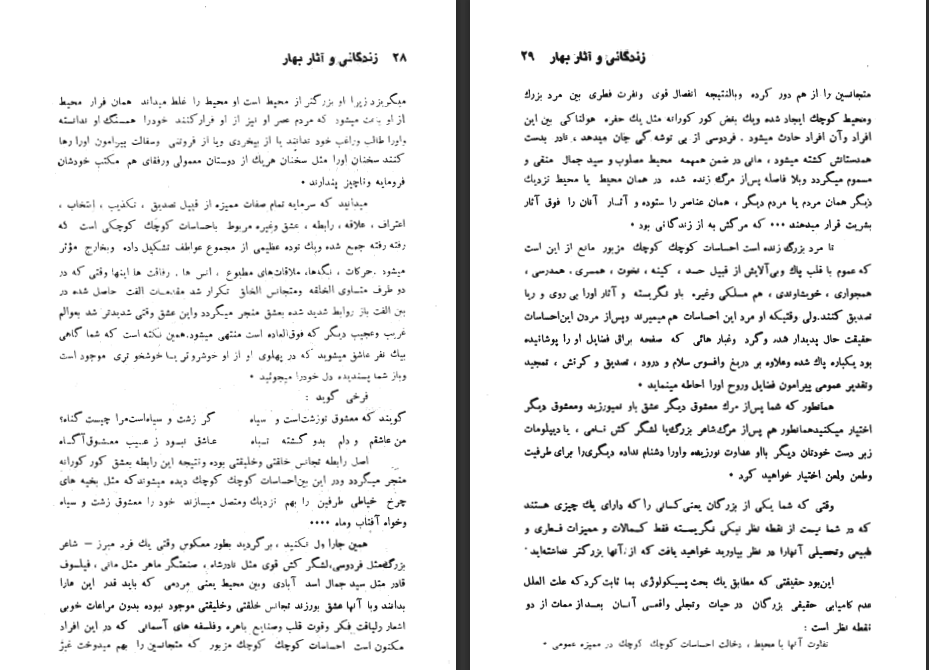 ۲۸ زندگانی و آثار بهار
میگریزد زیرا او بزرگتر از محیط است او محیط را غلط میداند همان فرار محیط
از او باعث میشود که مردم عصر او نیز از او فرار کنند خودرا همسنگ او ندانسته
واورا طالب وراغب خود ندانند یا از بیخردی ویا از فروتنی وسفالت پیرامون اورا رها
کنند سخنان اورا مثل سخنان هریك از دوستان معمولی ورفقای هم مكتب خودشان
فرومایه وناچیز پندارند •
میدانید که سرمایه تمام صفات ممیزه از قبیل تصدیق ، تکذیب ، انتخاب ،
اعتراف ، علاقه ، رابطه ، عشق وغیره مربوط باحساسات كوچك كوچكی است که
رفته رفته جمع شده ویك توده عظیمی از مجموع عواطف تشکیل داده وبخارج مؤثر
میشود .حرکات ، نگه‌ها، ملاقات‌های مطبوع ، انس ها ، رفاقت ها اینها وقتی که در
دو طرف متساوی الخلقه ومتجانس الخلق تکرار شد مقدمات الفت حاصل شده در
بین الفت باز روابط شدید شده بعشق منجر میگردد واین عشق وقتی شدیدتر شد بعوالم
غریب وعجیب دیگر که فوق‌العاده است منتهی میشود.همین نکته است که شما گاهی
بیك نفر عاشق میشوید که در پهلوی او از او خوشروتر یا خوشخو تری موجود است
وباز شما پسندیده دل خودرا میجوئید •
فرخی گوید :
گویند که معشوق توزشت‌است و سیاه گر زشت و سیاه‌است‌مرا چیست گناه؟
من عاشقم و دلم بدو گشته تباه عاشق نبود ز عیب معشوق‌آگاه
اصل رابطه تجانس خلقتی وخلیقتی بوده ونتیجه این رابطه بعشق کور کورانه
منجر میگردد ودر این بین‌احساسات كوچك كوچك دیده میشوندكه مثل بخیه های
چرخ خیاطی طرفین را بهم نزدیك ومتصل میسازند خود را معشوق زشت و سیاه
وخواه آفتاب وماه ••••
همین جارا ول نکنید ، برگردید بطور معکوس وقتی یك فرد مبرز — شاعر
بزرگ‌مثل فردوسی،لشگر کش قوی مثل نادرشاه ، صنعتگر ماهر مثل مانی ، فیلسوف
قادر مثل سید جمال اسد آبادی وبین محیط یعنی مردمی که باید قدر این هارا
بدانند وبا آنها عشق بورزند تجانس خلقتی وخلیقتی موجود نبوده بدون مراعات خوبی
اشعار ولیاقت فکر وقوت قلب وصنایع باهره وفلسفه های آسمانی که در این افراد
مکنون است احساسات كوچك كوچك مزبور که متجانسین را بهم میدوخت غیر
زندگانی و آثار بهار ۲۹
متجانسین را از هم دور کرده وبالنتیجه انفصال قوی ونفرت فطری بین مرد بزرك
ومحیط كوچك ایجاد شده ویك بغض کور کورانه مثل یك حفره هولناکی بین این
افراد وآن افراد حادث میشود . فردوسی از بی توشه گی جان میدهد ، نادر بدست
همدستانش کشته میشود ، مانی در ضمن همهمه محیط مصلوب و سید جمال منفی و
مسموم میگردد وبلا فاصله پس‌از مرگ زنده شده در همان محیط یا محیط نزدیك
دیگر همان مردم یا مردم دیگر ، همان عناصر را ستوده و آثار آنان را فوق آثار
بشریت قرار میدهند ••• که مرگش به از زندگانی بود •
تا مرد بزرگ زنده است احساسات كوچك كوچك مزبور مانع از این است
که عموم با قلب پاك وبی‌آلایش از قبیل حسد ، کینه ، نخوت ، همسری ، همدرسی ،
همجواری ، خویشاوندی ، هم مسلکی وغیره باو نگریسته و آثار اورا بی روی و ریا
تصدیق کنند.ولی وقتیکه او مرد این احساسات هم میمیرند وپس‌از مردن این‌احساسات
حقیقت حال پدیدار شد، وگرد وغبار هائی که صفحه براق فضایل او را پوشانیده
بود یکباره پاك شده وعلاوه بر دریغ وافسوس سلام و درود ، تصدیق و کرنش ، تمجید
وتقدیر عمومی پیرامون فضایل وروح اورا احاطه مینماید •
همانطور که شما پس‌از مرك معشوق دیگر عشق باو نمیورزید ومعشوق دیگر
اختیار میکنیدهمانطور هم پس‌از مرگ شاعر بزرگ‌یا لشگر کش نامی ، یا دیپلومات
زبر دست خودتان دیگر بااو عداوت نورزیده واورا دشنام نداده دیگری‌را برای طرفیت
وطعن ولعن اختیار خواهید کرد •
وقتی که شما یکی از بزرگان یعنی‌کسانی را که دارای یك چیزی هستند
که در شما نیست از نقطه نظر نیکی نگریسته فقط کمالات و ممیزات فطری و
طبیعی وتحصیلی آنهارا در نظر بیاورید خواهید یافت که از آنها بزرگتر نداشته‌اید•
این‌بود حقیقتی که مطابق یك بحث پسیکولوژی بما ثابت‌کردکه علت العلل
عدم کامیابی حقیقی بزرگان در حیات وتجلی واقعی آنان بعداز ممات از دو
نقطه نظر است :
تفاوت آنها با محیط ، دخالت احساسات كوچك كوچك در ممیزه عمومی •